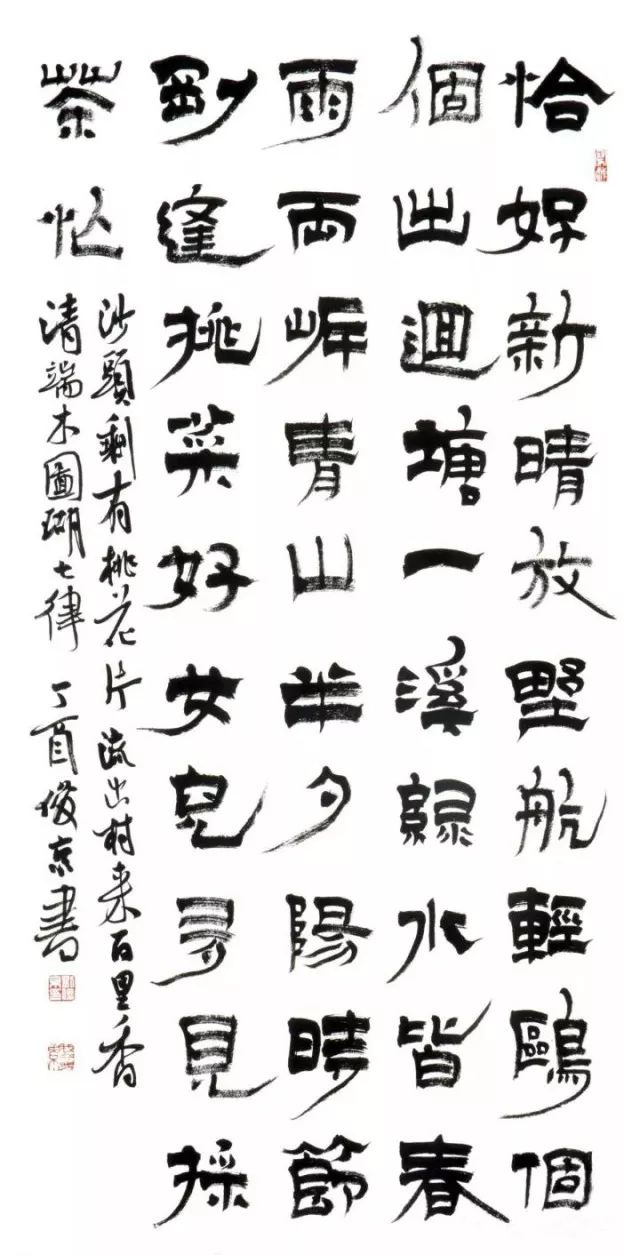 恰好新晴放野航輕鷗個
個出迴塘一溪綠水皆春
雨兩岸青山半夕陽時節
剛逢挑菜好女兒多見採
茶忙
沙頭剩有桃花片流出村來百里香
清端木國瑚七律丁酉俊京書